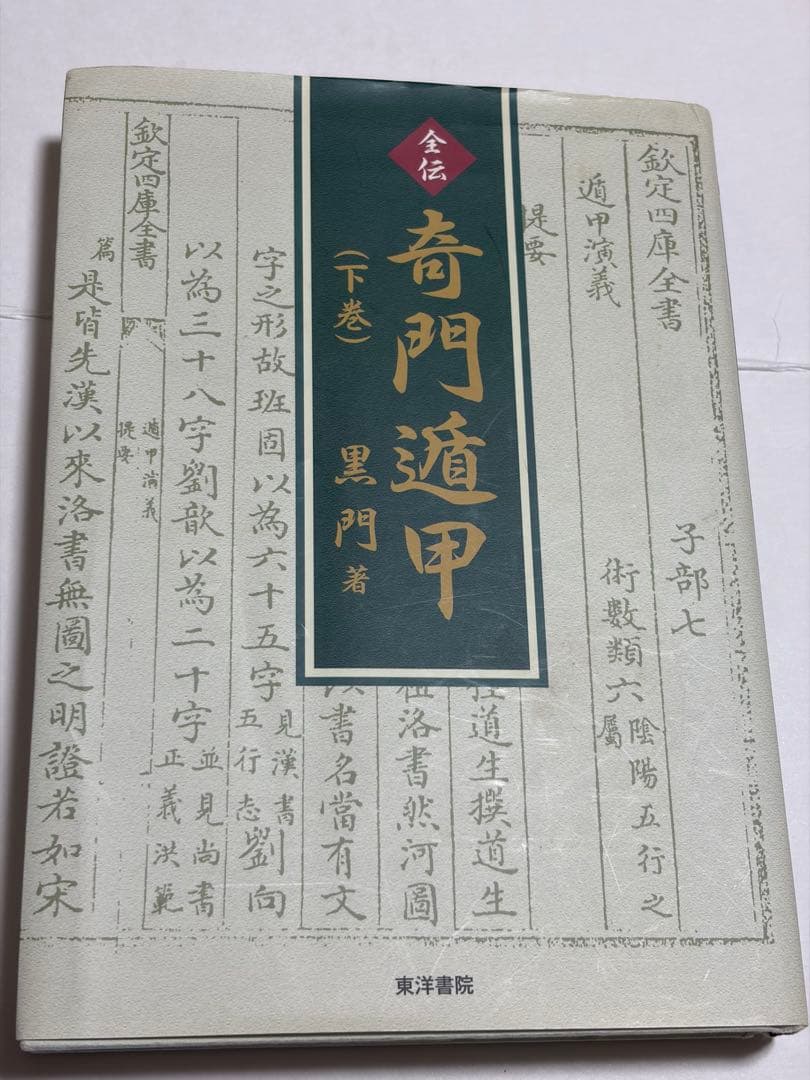 全伝
奇門遁甲
(下巻)
黒門著
欽定四庫全書
子部七
遁甲演義
術數類六陰陽五行之
屬
提要
道生撰道生
洛書然河圖
書名當有文
字之形故班固以為六十五字見漢書
五行志劉向
以為三十八字劉歆以為二十字並見尚書
正義洪範
欽定四庫全書
遁甲演義
提要
篇
是皆先漢以來洛書無圖之明證若如宋
東洋書院